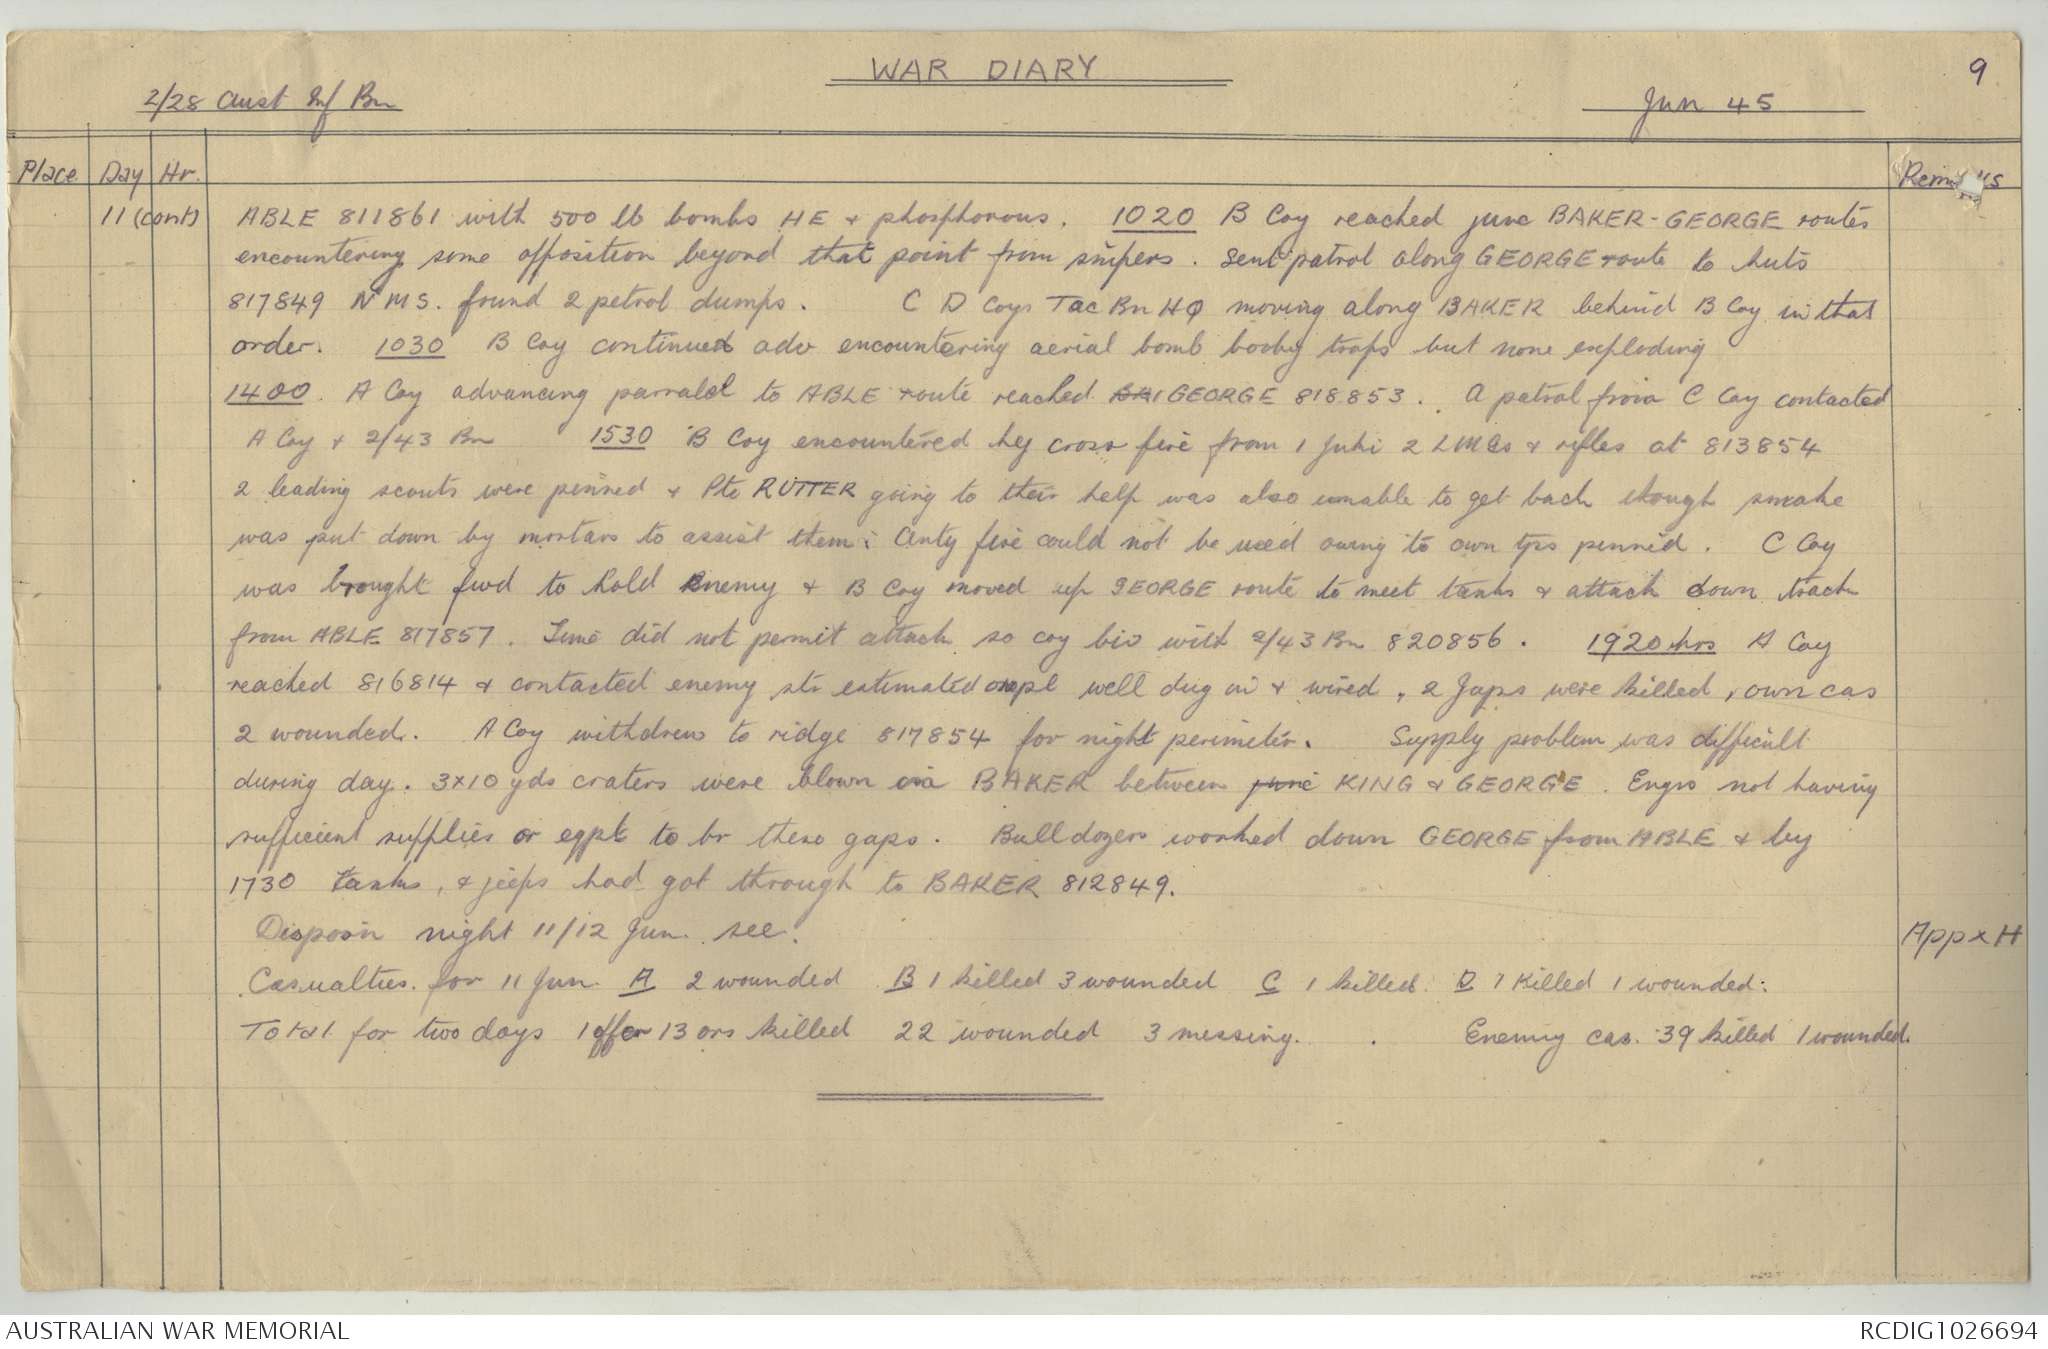 WAR DIARY
9
2/28 Aust Inf Bn
Jun 45
Place Day Hr. Remarks
11 (cont) ABLE 811861 with 500 lb bombs HE & phosphorous. 1020 B Coy reached junc BAKER-GEORGE routes
encountering some opposition beyond that point from snipers. Sent patrol along GEORGE route to huts
817849 N M S. found 2 petrol dumps. C D Coys Tac Bn HQ moving along BAKER behind B Coy in that
order. 1030 B Coy continued adv encountering aerial bomb booby traps but none exploding
1400. A Coy advancing parralel to ABLE route reached GEORGE 818853. A patrol from C Coy contacted
A Coy & 2/43 Bn 1530 B Coy encountered hy cross fire from 1 Juki 2 LMGs & rifles at 813854
2 leading scouts were pinned & Pte RUTTER going to their help was also unable to get back though smoke
was put down by mortars to assist them. Arty fire could not be used owing to own tps pinned. C Coy
was brought fwd to hold Enemy & B Coy moved up GEORGE route to meet tanks & attack down track
from ABLE 817857. Time did not permit attack so coy biv with 2/43 Bn 820856. 1920 hrs A Coy
reached 816814 & contacted enemy str estimated one pl well dug in & wired, 2 Japs were killed, own cas
2 wounded. A Coy withdrew to ridge 817854 for night perimeter. Supply problem was difficult
during day. 3x10 yds craters were blown in BAKER between junc KING & GEORGE. Engrs not having
sufficient supplies or eqpt to br these gaps. Bulldozers worked down GEORGE from ABLE & by
1730 tanks, & jeeps had got through to BAKER 812849.
Disposn night 11/12 Jun. see. Appx H
Casualties for 11 Jun. A 2 wounded B 1 killed 3 wounded C 1 killed D 1 killed 1 wounded.
Total for two days 1 offr 13 ors killed 22 wounded 3 messing. Enemy cas. 39 killed 1 wounded.
AUSTRALIAN WAR MEMORIAL
RCDIG1026694